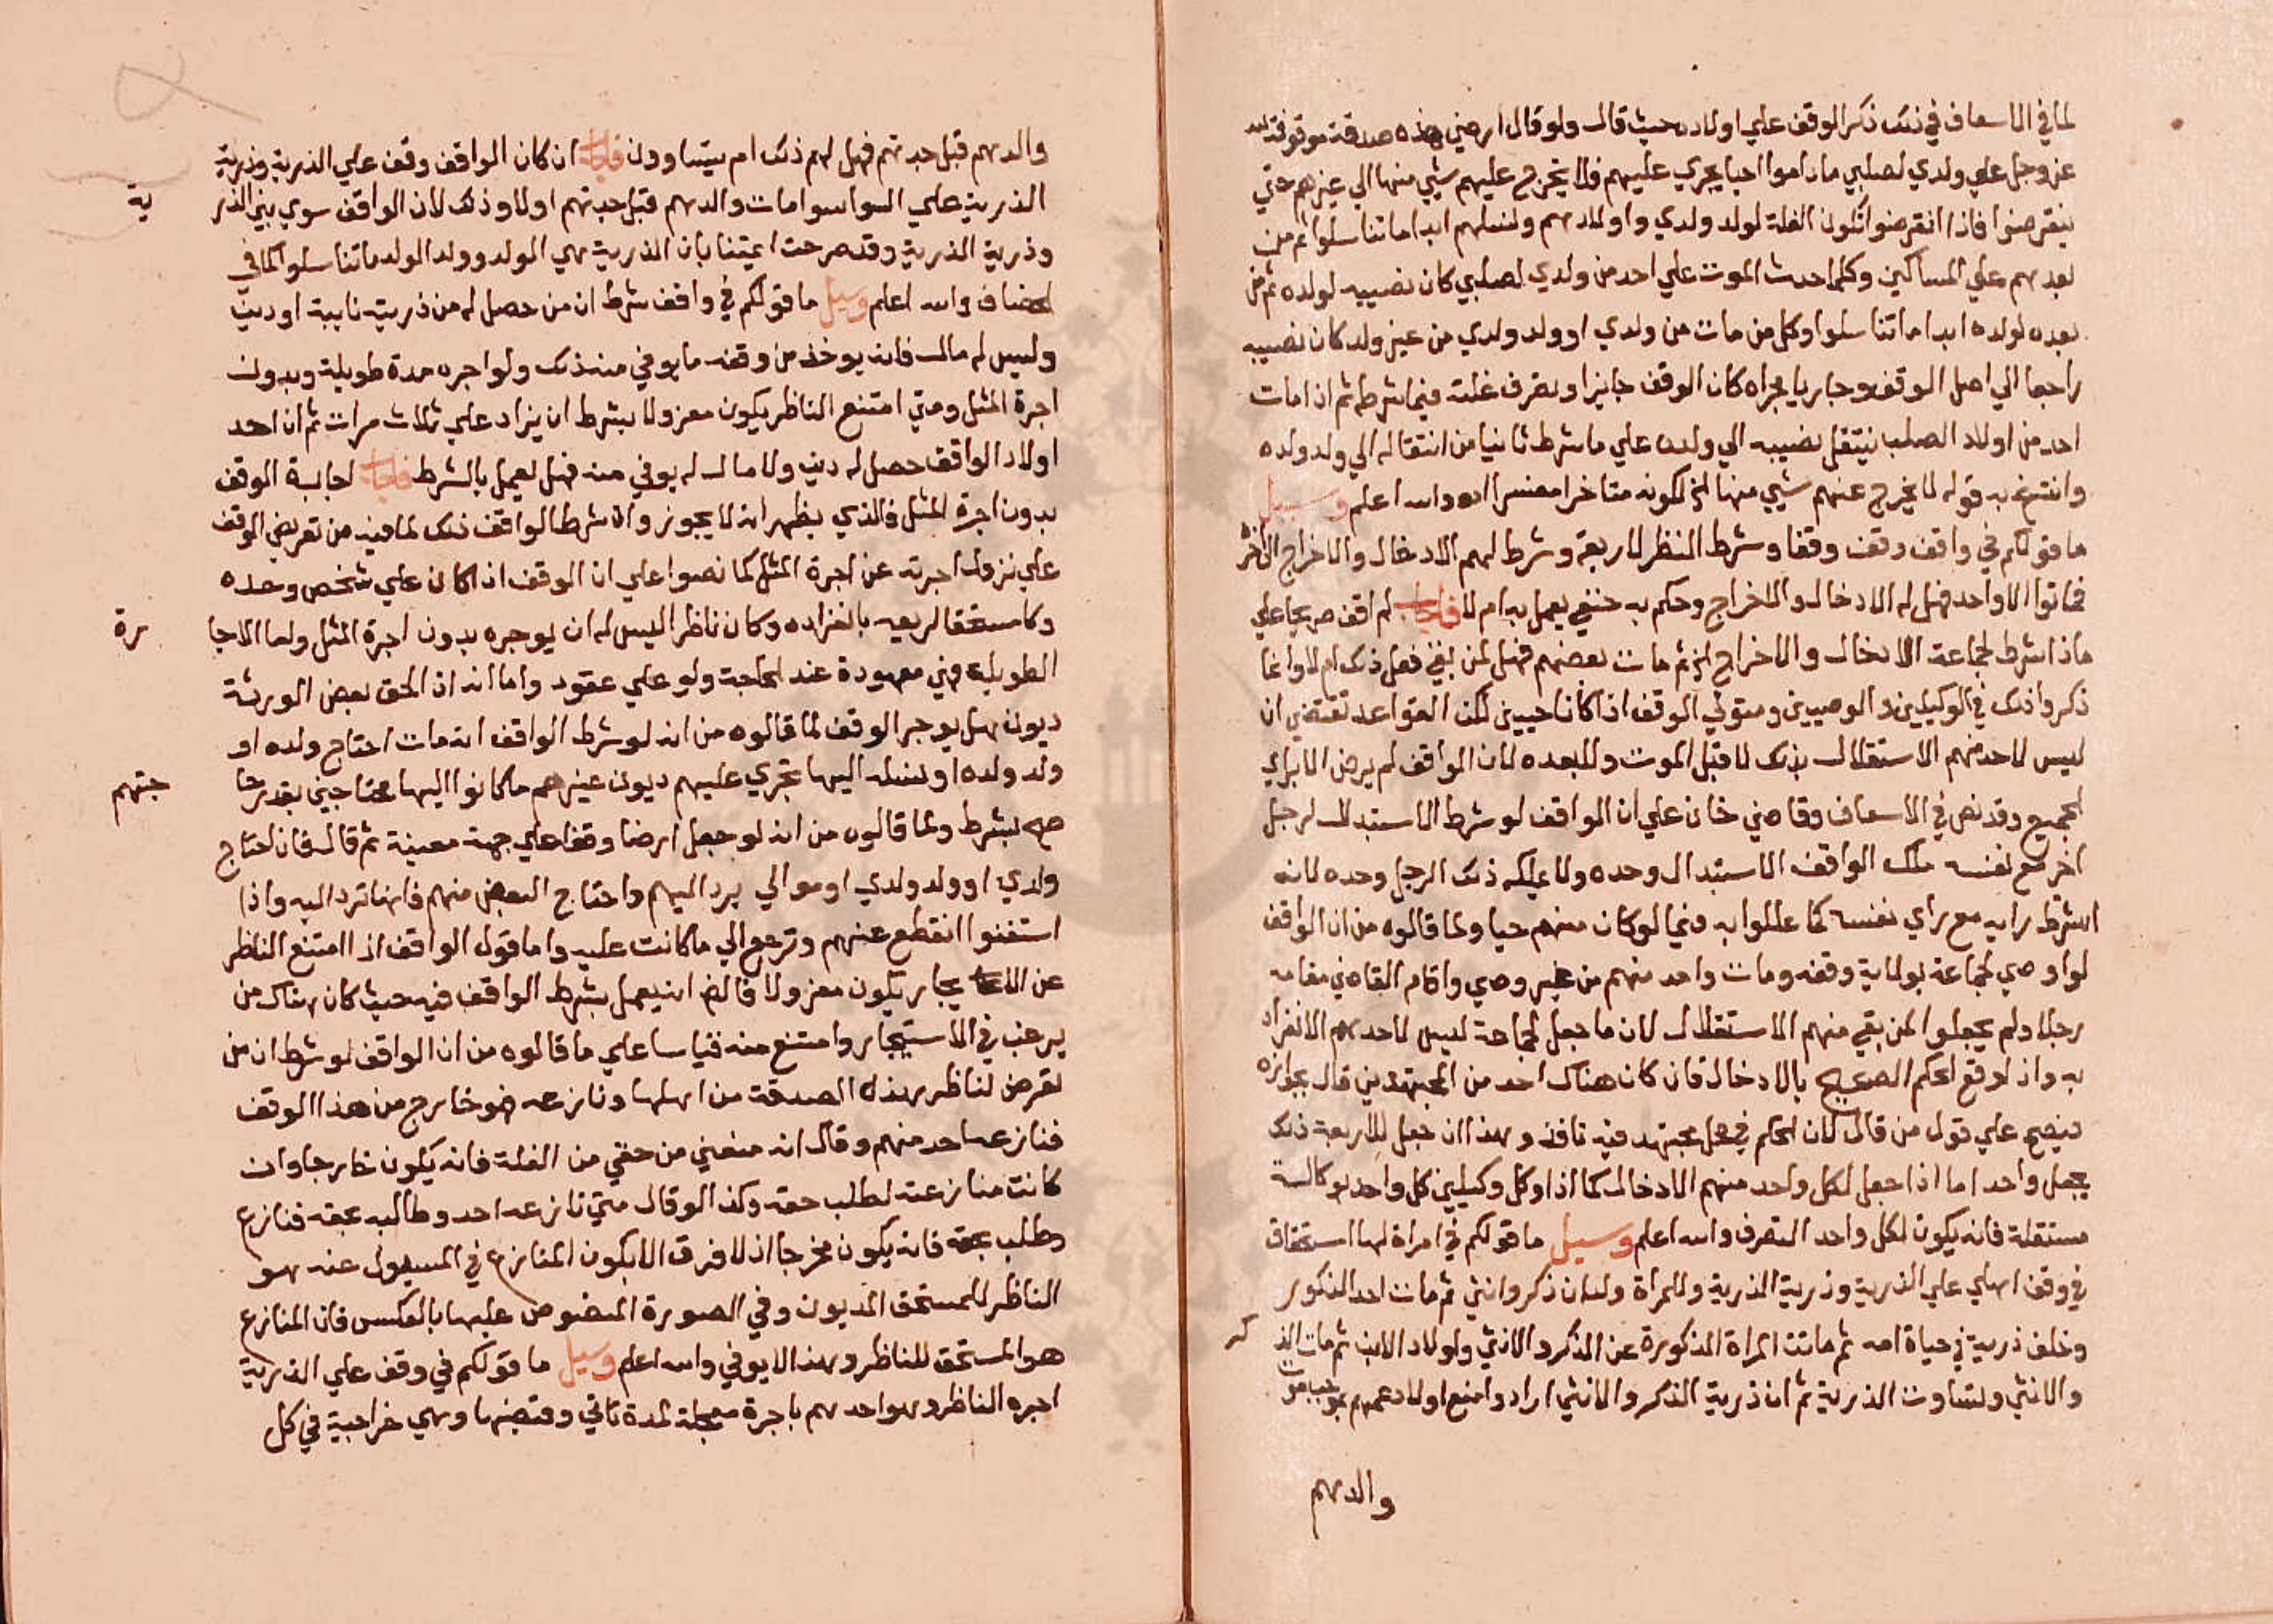 لما في الاسعاف في ذلك ذكر الوقف علي اولاده حيث قال ولو قال ارضي هذه صدقة موقوفة لله
عز وجل علي ولدي لصلبي ماداموا احيا يجري عليهم فلا يخرج عليهم شي منها الي غيرهم حتي
ينقرضوا فاذا انقرضوا تكون الغلة لولد ولدي واولادهم ولنسلهم ابدا ما تناسلوا ثم من
بعدهم علي المساكين وكلما احدث الموت علي احد من ولدي لصلبي كان نصيبه لولده ثم من
بعده لولده ابدا ما تناسلوا وكل من مات من ولدي او ولد ولدي من غير ولد كان نصيبه
راجعا الي اصل الوقف وجاريا مجراه كان الوقف جايزا وتصرف غلته فيما شرطه ثم اذا مات
احد من اولاد الصلب ينتقل نصيبه الي ولده علي ما شرط ثانيا من انتقاله الي ولد ولده
وانتسخ به قوله لا يخرج عنهم شي منها الخ لكونه متاخرا مفسرا اه والله اعلم وسيل
ما قولكم في واقف وقف وقفا وشرط النظر لاربعة وشرط لهم الادخال والاخراج الي اخره
فماتوا الا واحد فهل له الادخال والاخراج وحكم به حنفي يعمل به ام لا فاجاب لم اقف صريحا علي
ما اذا شرط لجماعة الادخال والاخراج الخ ثم مات بعضهم فهل لمن بقي فعل ذلك ام لا وانما
ذكروا ذلك في الوكيلين والوصيين ومتولي الوقف اذا كانا حيين لكن القواعد تقتضي ان
ليس لاحد منهم الاستقلال بذلك لا قبل الموت ولا بعده لان الواقف لم يرض الا براي
الجميع وقد نص في الاسعاف وقاضي خان علي ان الواقف لو شرط الاستبدال لرجل
اخر مع نفسه ملك الواقف الاستبدال وحده ولا يملكه ذلك الرجل وحده لانه
اشترط رايه مع راي نفسه كما عللوا به فيما لو كان منهم حيا ولما قالوه من ان الواقف
لو اوصي لجماعة بولاية وقفه ومات واحد منهم من غير وصي واقام القاضي مقامه
رجلا ولم يجعلوا لمن بقي منهم الاستقلال لان ما جعل لجماعة ليس لاحدهم الانفراد
به واذا وقع الحكم الصحيح بالادخال فان كان هناك احد من المجتهدين قال بجوازه
فيصح علي قول من قال لان الحكم في محل مجتهد فيه نافذ وهذا ان جعل للاربعة ذلك
بجعل واحد اما اذا جعل لكل واحد منهم الادخال كما اذا وكل وكيلين كل واحد بوكالة
مستقلة فانه يكون لكل واحد التصرف والله اعلم وسيل ما قولكم في امراة لها استحقاق
في وقف اهلي علي الذرية وذرية الذرية وللمراة ولدان ذكر وانثي ثم مات احد الذكور
وخلف ذرية في حياة امه ثم ماتت المراة المذكورة عن الذكر والانثي ولولاد الابن ثم مات الذكر
والانثي ولتساوت الذرية ثم ان ذرية الذكر والانثي ارادوا منع اولاد عمهم بموجب موت
والدهم
والدهم قبل جدتهم فهل لهم ذلك ام يتساوون فاجاب ان كان الواقف وقف علي الذرية وذرية
الذرية علي السواسوا مات والدهم قبل جدتهم اولا وذلك لان الواقف سوي بين الذرية
وذرية الذرية وقد صرحت ايمتنا بان الذرية هي الولد وولد الولد ما تناسلوا كما في
الخصاف والله اعلم وسيل ما قولكم في واقف شرط ان من حصل له من ذريته نايبة او دين
وليس له مال فانه يوخذ من وقفه ما يوفي منه ذلك ولو اجره مدة طويلة وبدون
اجرة المثل ومتي امتنع الناظر يكون معزولا بشرط ان يزاد علي ثلاث مرات ثم ان احد
اولاد الواقف حصل له دين ولا مال له يوفي منه فهل يعمل بالشرط فاجاب اجارة الوقف
بدون اجرة المثل فالذي يظهر انه لا يجوز وان شرط الواقف ذلك لما فيه من تعريض الوقف
علي نزول اجرته عن اجرة المثل كما نصوا علي ان الوقف اذا كان علي شخص وحده
وكا مستحقا لريعه بانفراده وكان ناظرا ليس له ان يوجره بدون اجرة المثل واما الاجارة
الطويلة فهي معهودة عند الحاجة ولو علي عقود واما انه اذا لحق بعض الورثة
ديون هل يوجر الوقف لما قالوه من انه لو شرط الواقف انه مات احتاج ولده او
ولد ولده او نسله اليها تجري عليهم ديون غيرهم ما كانوا اليها محتاجين بقدر حاجتهم
صح بشرط ولما قالوه من انه لو جعل ارضا وقفا علي جهة معينة ثم قال فان احتاج
ولدي او ولد ولدي او موالي يرد اليهم واحتاج البعض منهم فانها ترد اليه واذا
استغنوا انقطع عنهم وترجع الي ما كانت عليه واما قول الواقف اذا امتنع الناظر
عن الايجار يكون معزولا فالظ انه يعمل بشرط الواقف فيه حيث كان هناك من
يرغب في الاستيجار وامتنع منه قياسا علي ما قالوه من ان الواقف لو شرط ان من
تعرض لناظر هذه الصدقة من اهلها ونازعه فهو خارج من هذا الوقف
فنازعه احد منهم وقال انه منعني من حقي من الغلة فانه يكون خارجا وان
كانت منازعته لطلب حقه وكذا لو قال متي نازعه احد وطالبه بحقه فنازع
وطلب بحقه فانه يكون مخرجا اذ لا فرق الا بكون المنازع في المسيول عنه هو
الناظر للمستحق المديون وفي الصورة المنصوص عليها بالعكس فان المنازع
هو المستحق للناظر وهذا لا يوفي والله اعلم وسيل ما قولكم في وقف علي الذرية
اجره الناظر وهو احدهم باجرة معجلة لمدة تاتي وقبضها وهي خراجية في كل